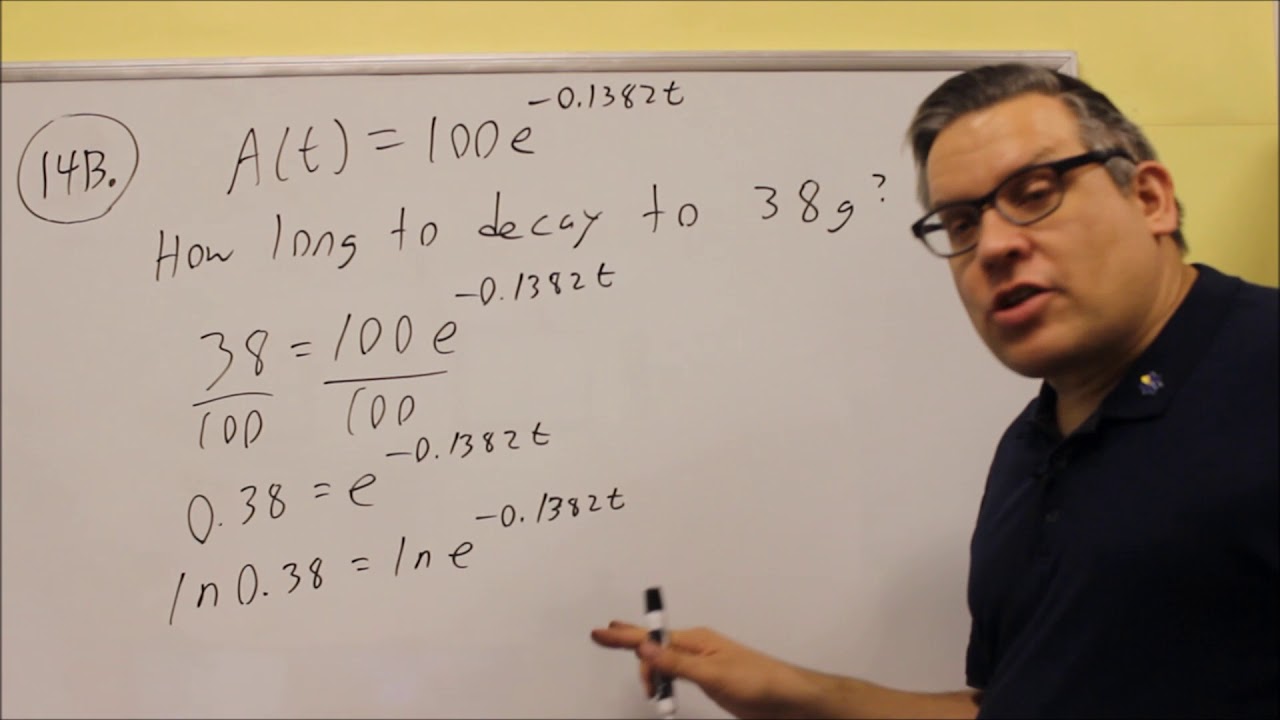 14B. A(t) = 100e^-0.1382t
How long to decay to 38g?
38 = 100e^-0.1382t
100 100
0.38 = e^-0.1382t
ln 0.38 = ln e^-0.1382t